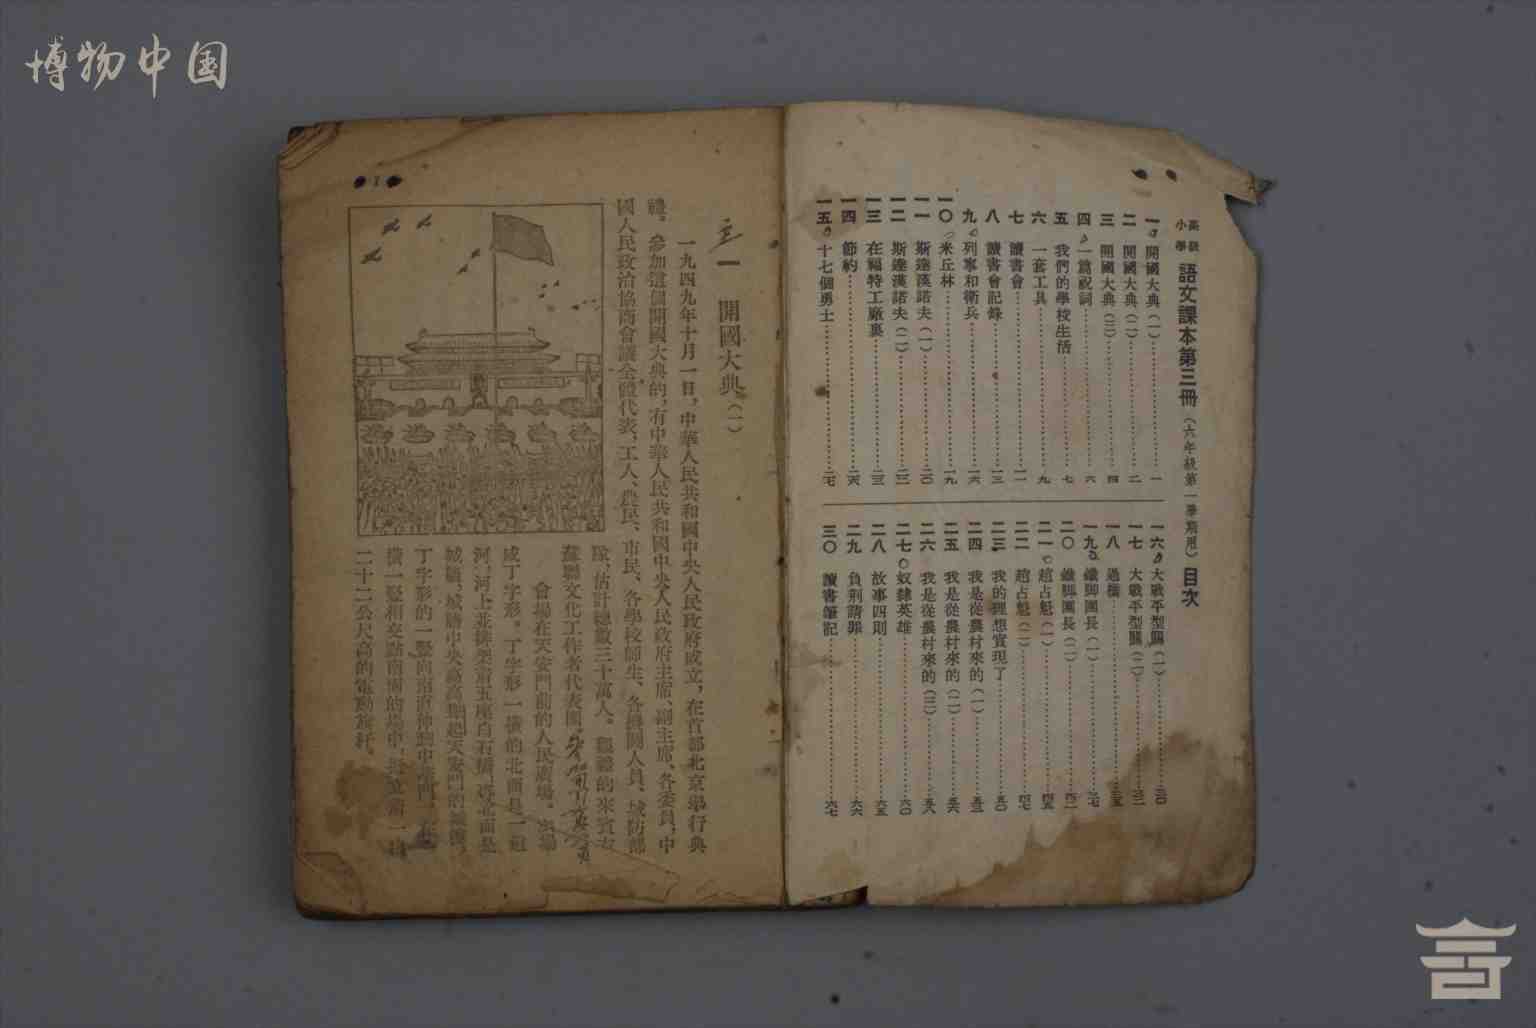 博物中国
高級小學 語文課本第三冊（六年級第一學期用）目次
一 開國大典（一）……一
二 開國大典（二）……二
三 開國大典（三）……四
四 一篇祝詞……六
五 我們的學校生活……七
六 一套工具……九
七 讀書會……一一
八 讀書會記錄……一三
九 列寧和衛兵……一六
一〇 米丘林……一九
一一 斯達漢諾夫（一）……二〇
一二 斯達漢諾夫（二）……二二
一三 在福特工廠裏……二三
一四 節約……二六
一五 十七個勇士……二七
一六 大戰平型關（一）……三〇
一七 大戰平型關（二）……三二
一八 過橋……三五
一九 鐵脚團長（一）……三七
二〇 鐵脚團長（二）……四二
二一 趙占魁（一）……四五
二二 趙占魁（二）……四七
二三 我的理想實現了……五〇
二四 我是從農村來的（一）……五三
二五 我是從農村來的（二）……五六
二六 我是從農村來的（三）……五八
二七 奴隸英雄……六〇
二八 故事四則……六五
二九 負荆請罪……六六
三〇 讀書筆記……六七
1
一 開國大典（一）
一九四九年十月一日，中華人民共和國中央人民政府成立，在首都北京舉行典
禮。參加這個開國大典的，有中華人民共和國中央人民政府主席、副主席、各委員，中
國人民政治協商會議全體代表，工人、農民、市民、各學校師生、各機關人員、城防部
隊，估計總數三十萬人。觀禮的來賓有
蘇聯文化工作者代表團
會場在天安門前的人民廣場。廣場
成丁字形。丁字形一橫的北面是一道
河，河上並排架着五座白石橋，再北面是
城牆，城牆中央高高聳起天安門的城樓。
丁字形的一豎向南直伸到中華門。在一
橫一豎相交點南面的場中，挺立着一根
二十二公尺高的電動旗杆。